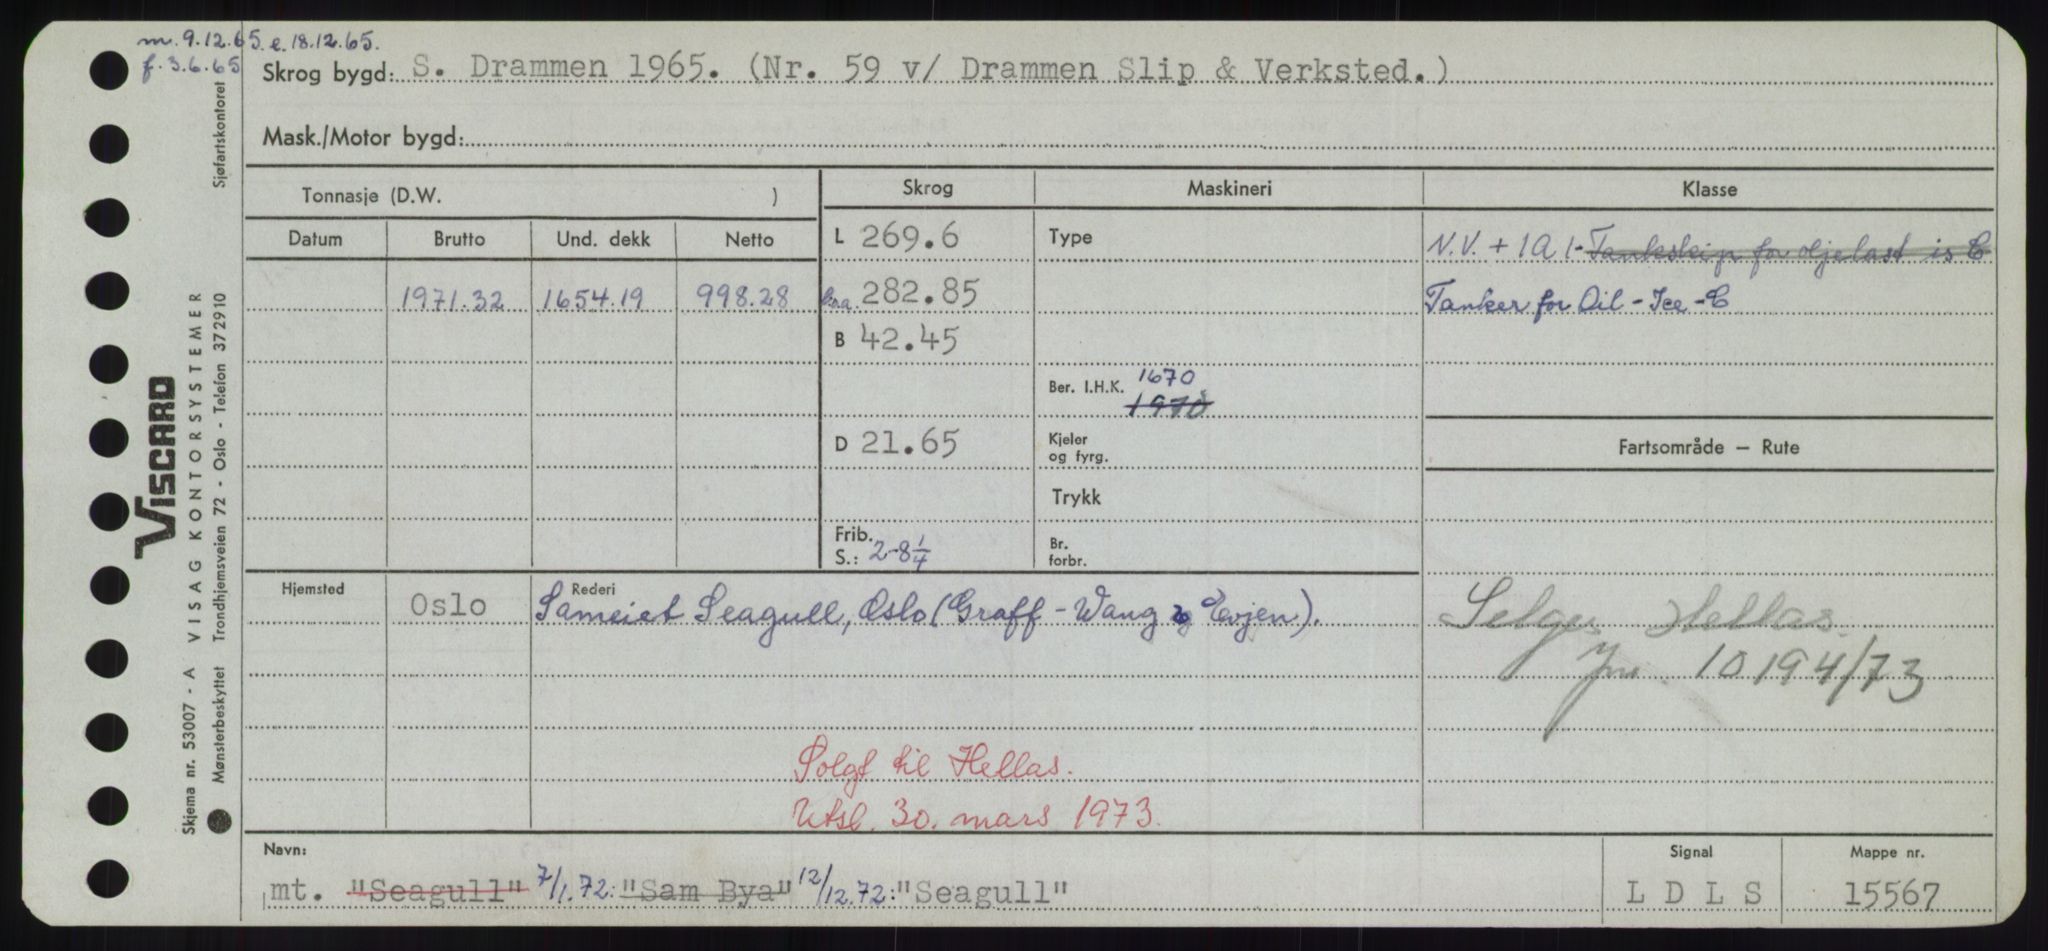 m. 9.12.65. e. 18.12.65.
f. 3.6.65
Skrog bygd: S. Drammen 1965. (Nr. 59 v/ Drammen Slip & Verksted.)
Mask./Motor bygd:
Tonnasje (D.W. )
Skrog
Maskineri
Klasse
Datum
Brutto
Und. dekk
Netto
L 269.6
Type
N.V. + 1A1 - Tankskip for oljelast is C
1971.32
1654.19
998.28
282.85
Tanker for Oil - Ice - C
B 42.45
Ber. I.H.K. 1670
1970
D 21.65
Kjeler
og fyrg.
Fartsområde — Rute
Trykk
Frib.
S.: 2-8 1/4
Br.
forbr.
Hjemsted
Oslo
Rederi
Sameiet Seagull, Oslo (Graff-Wang og Evjen).
Selges Hellas.
10194/73
Solgt til Hellas.
Utsl. 30. mars 1973.
Navn:
mt. "Seagull" 7/1.72: "Sam Bya" 12/12.72: "Seagull"
Signal
L D L S
Mappe nr.
15567
Sjøfartskontoret
VISCARD
VISAG KONTORSYSTEMER
Skjema nr. 53007 - A
Mønsterbeskyttet Trondhjemsveien 72 - Oslo - Telefon 372910